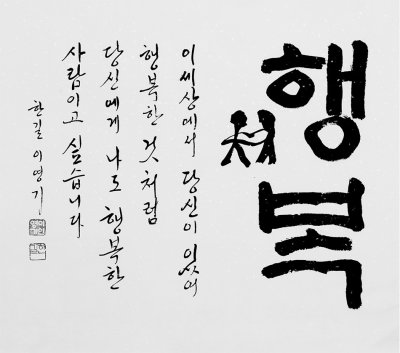 행복
이세상에서 당신이 있어
행복한 것처럼
당신에게 나도 행복한
사람이고 싶습니다
한길 이영기